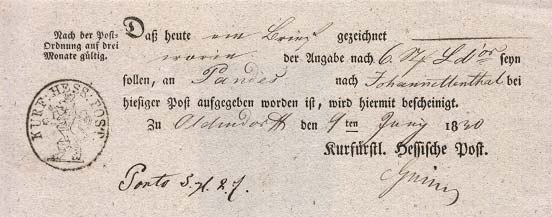 Nach der Post-
Ordnung auf drei
Monate gültig.
Daß heute ein Brief gezeichnet
worin der Angabe nach 6 Ld'or seyn
sollen, an nach Johannettenthal bei
hiesiger Post aufgegeben worden ist, wird hiermit bescheinigt.
Zu Oldendorff den 9ten Juny 1830
Kurfürstl. Hessische Post.
Porto
KURF. HESS. POST